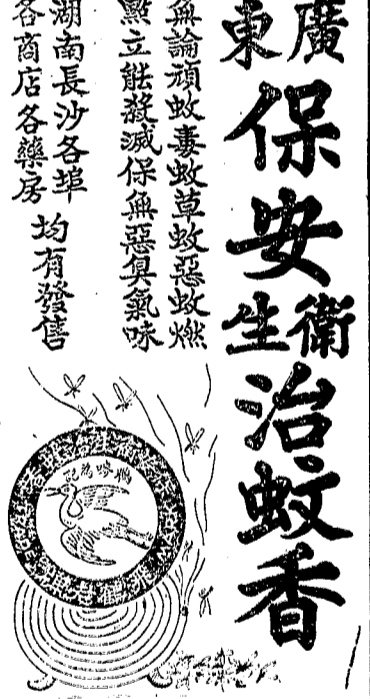 廣東
保安
衛生
治蚊香
無論頑蚊毒蚊草蚊惡蚊燃
點立能殺滅保無惡臭氣味
湖南長沙各埠
各商店各藥房
均有發售
為記